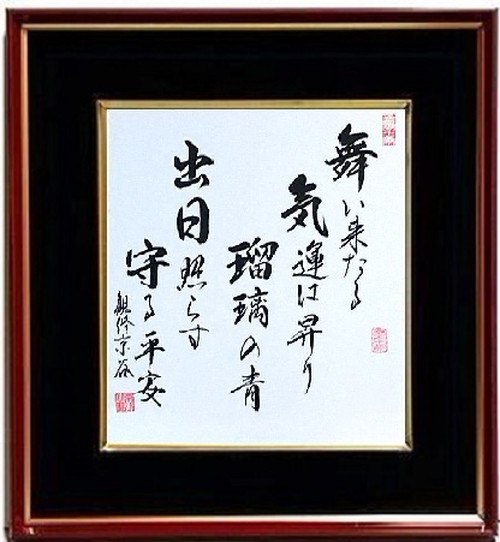 舞い来たる
気運は昇り
瑠璃の青
出日照らす
守る平安